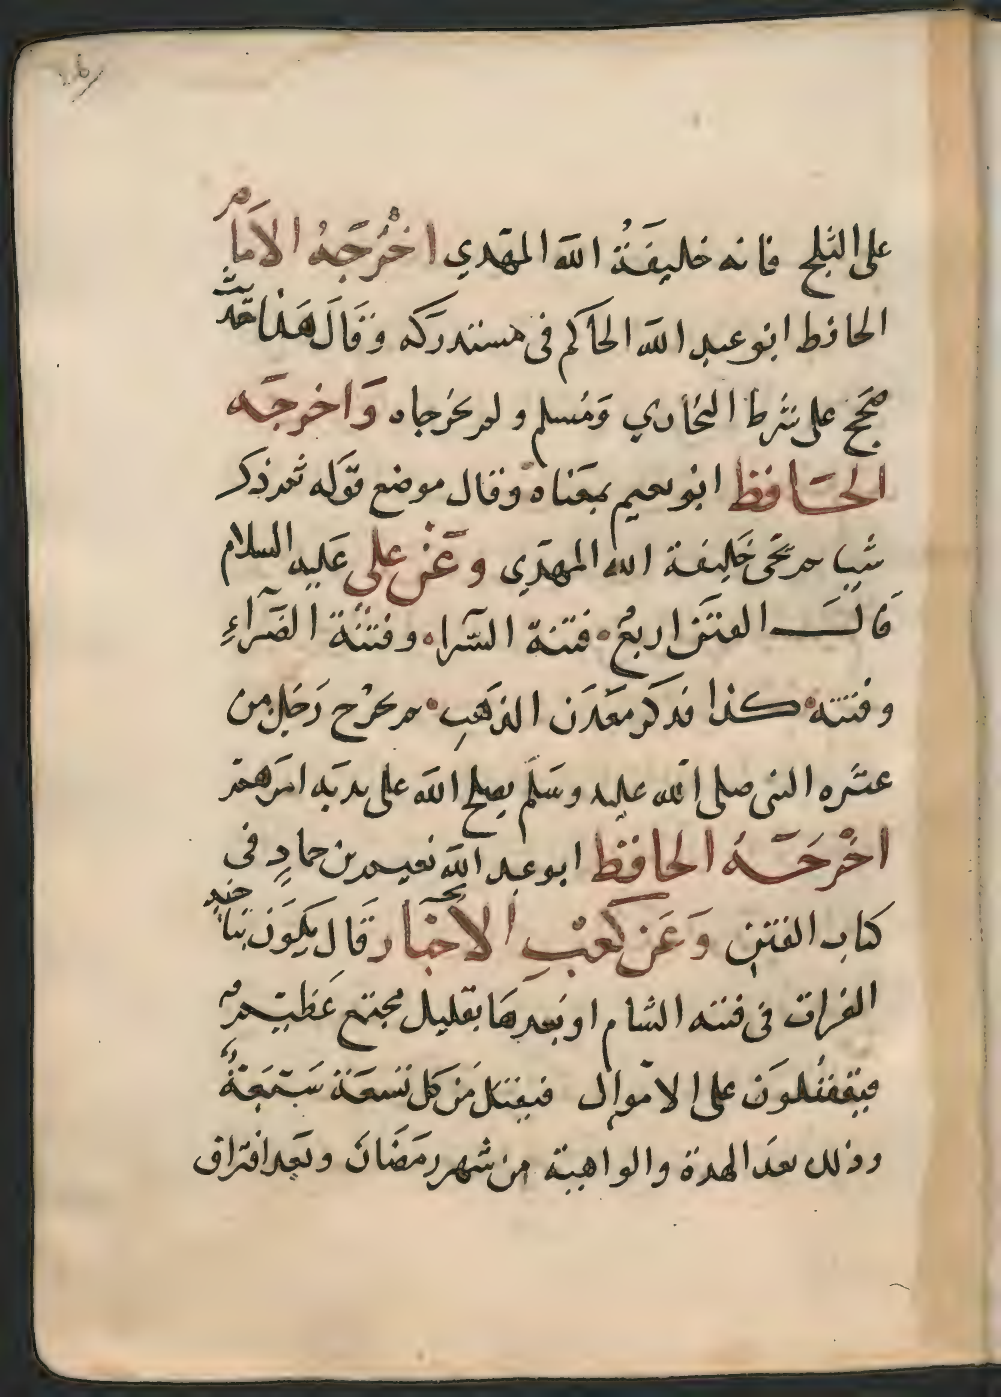 على الثلج فانه خليفة الله المهدي اخرجه الامام
الحافظ ابو عبد الله الحاكم فى مستدركه وقال هذا حديث
صحيح على شرط البخاري ومسلم ولم يخرجاه واخرجه
الحافظ ابو نعيم بمعناه وقال موضع قوله ثم ذكر
شيا ثم يجى خليفة الله المهدي وعن على عليه السلام
قال الفتن اربع فتنة السراء وفتنة الضراء
وفتنه كذا فذكر معدن الذهب ثم يخرج رجل من
عتره النبى صلى الله عليه وسلم يصلح الله على يديه امرهم
اخرجه الحافظ ابو عبد الله نعيم بن حماد فى
كتاب الفتن وعن كعب الاحبار قال يكون بناحيه
الفرات فى فتنه الشام او بعدها بقليل مجتمع عظيم
فيقتتلون على الاموال فيقتل من كل تسعة سبعة
وذلك بعد الهدة والواهية من شهر رمضان وبعد افتراق